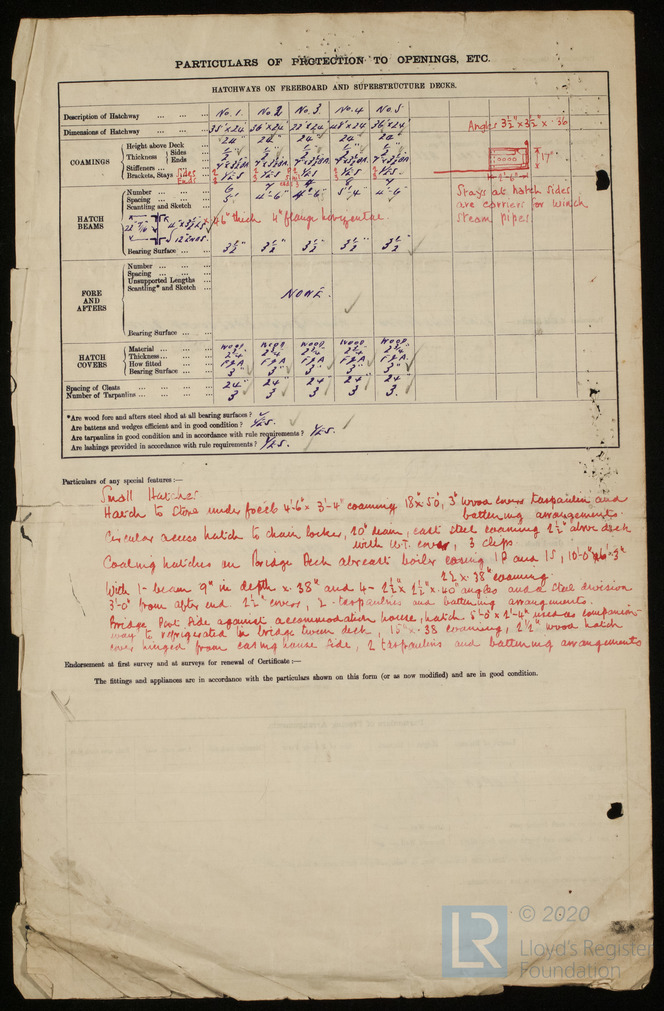 PARTICULARS OF PROTECTION TO OPENINGS, ETC.
HATCHWAYS ON FREEBOARD AND SUPERSTRUCTURE DECKS.
Description of Hatchway No. 1. No. 2 No. 3 No. 4 No. 5
Dimensions of Hatchway 35' x 24' 36' x 24' 22' x 24' 48' x 24' 36' x 24'
Angles 3½" x 3½" x .36
COAMINGS
Height above Deck 24" 24" 24" 24" 24"
Thickness Sides
Ends
Stiffeners
Brackets, Stays Sides
Ends
17"
2'-6"
Stays at hatch sides
are carriers for winch
steam pipes
HATCH BEAMS
Number 6 7
Spacing 5' 4'-6 4'-6 5'-4 4'-6
Scantling and Sketch
.46" thick 4" flange horizontal.
Bearing Surface 3½" 3½" 3½" 3½" 3½"
FORE AND AFTERS
Number
Spacing
Unsupported Lengths
Scantling* and Sketch
NONE.
Bearing Surface
HATCH COVERS
Material WOOD WOOD WOOD WOOD WOOD
Thickness 2¼ 2¼ 2¼ 2¼ 2¼
How fitted F & A F & A F & A F & A F & A
Bearing Surface 3" 3" 3" 3" 3"
Spacing of Cleats 24" 24" 24" 24" 24"
Number of Tarpaulins 3 3 3 3 3.
*Are wood fore and afters steel shod at all bearing surfaces?
Are battens and wedges efficient and in good condition? YES.
Are tarpaulins in good condition and in accordance with rule requirements? YES.
Are lashings provided in accordance with rule requirements? YES.
Particulars of any special features:—
Small Hatches
Hatch to Store under focsle 4'-6" x 3'-4" coaming 18" x .50", 3" wood covers tarpaulin and
battening arrangements.
Circular access hatch to chain locker, 20" diam, cast steel coaming 2½" above deck
with W.T. cover, 3 clips
Coaling hatches on Bridge Deck abreast boiler casing 1P and 1S, 10'-0" x 6'-3"
coaming
With 1 - beam 9" in depth x .38" and 4 - 2½ x 2½" x .40" angles and a steel division
3'-0" from after end 2½" cover, 2 - tarpaulins and battening arrangements.
Bridge Port Side against accommodation house, hatch 5'-0 x 2'-4" used as companion-
way to refrigerated in bridge tween deck, 15" x .38 coaming, 2½" wood hatch
cover hinged from casing house side, 2 tarpaulins and battening arrangements
Endorsement at first survey and at surveys for renewal of Certificate:—
The fittings and appliances are in accordance with the particulars shown on this form (or as now modified) and are in good condition.
LR
© 2020
Lloyd's Register
Foundation